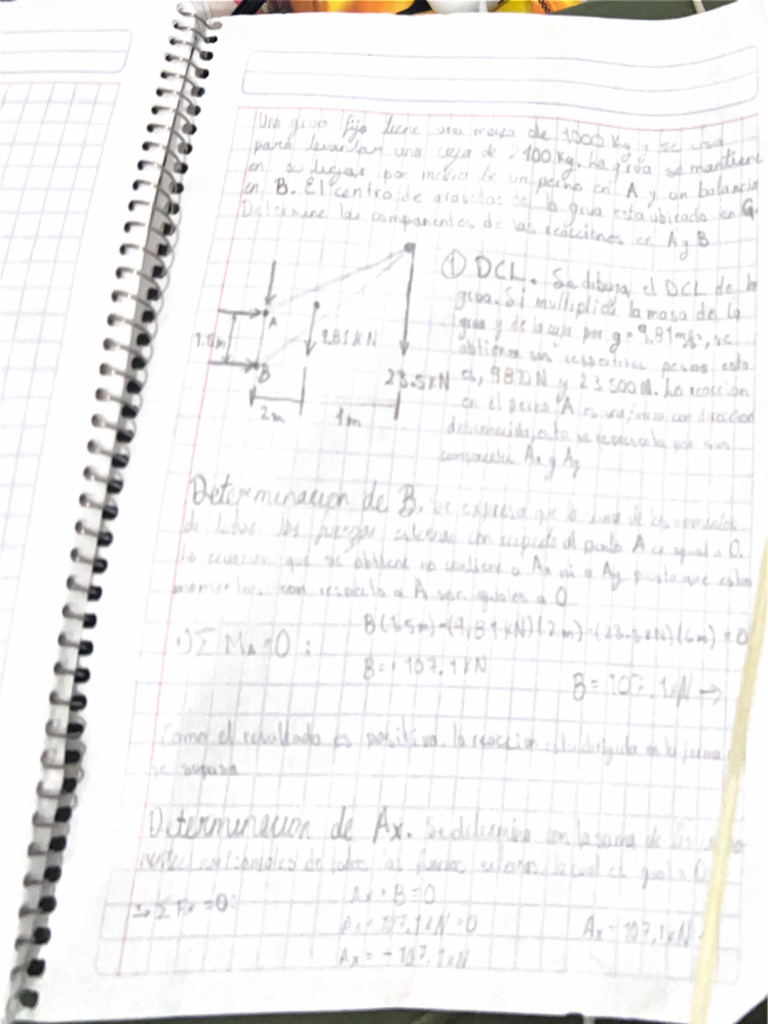 Una grua fija tiene una masa de 1000 Kg y se usa
para levantar una caja de 2400 Kg. La grua se mantiene
en su lugar por medio de un perno en A y un balancin
en B. El centro de gravedad de la grua esta ubicado en G.
Determine las componentes de las reacciones en A y B
① DCL. Se dibuja el DCL de la
grua. Si multiplica la masa de la
grua y de la caja por g = 9,81 m/s², se
obtienen sus respectivos pesos esto
es, 9820 N y 23 500 N. La reaccion
en el perno A es una fuerza con direccion
desconocida, esta se representa por sus
componentes Ax y Ay
A
B
9.81 KN
23.5 KN
2m
4m
Determinacion de B. Se expresa que la suma de los momentos
de todas las fuerzas externas con respecto al punto A es igual a 0.
La ecuacion que se obtiene no contiene a Ax ni a Ay puesto que estos
momentos con respecto a A son iguales a 0
ΣMA=0: B(1.5m)-(9,81KN)(2m)-(23.5KN)(6m)=0
B=+107.1KN
B=107.1KN →
Como el resultado es positivo. la reaccion esta dirigida en la forma
se supuso
Determinacion de Ax. Se determina con la suma de las
horizontales de todas las fuerzas externas la cual es igual a 0
ΣFx=0: Ax+B=0
Ax+107.1KN=0
Ax=-107.1KN
Ax=107.1KN